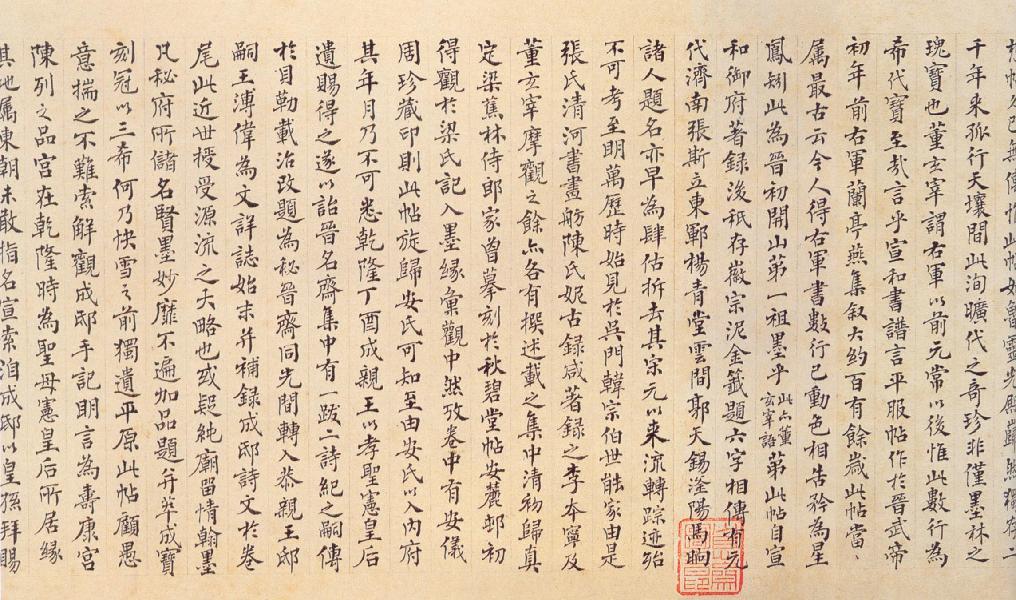 帖久已無傳惟此帖如魯靈光殿巋然獨存二
千年来孤行天壤間此洵曠代之奇珍非僅墨林之
瑰寶也董玄宰謂右軍以前元常以後惟此數行為
希代寶至哉言乎宣和書譜言平服帖作於晉武帝
初年前右軍蘭亭燕集叙大約百有餘歲此帖當、
属最古云今人得右軍書數行已動色相告矜為星
鳳矧此為晉初開山第一祖墨乎此亦董玄宰語第此帖自宣
和御府著録後秖存徽宗泥金籤題六字相傳有元
代濟南張斯立東鄆楊青堂雲間郭天錫滏陽馬昫
諸人題名亦早為肆估拆去其宋元以来流轉踪迹殆
不可考至明萬歷時始見於吳門韓宗伯世能家由是
張氏清河書畫舫陳氏妮古録咸著録之李本寧及
董玄宰摩觀之餘亦各有撰述載之集中清初歸真
定梁蕉林侍郎家曾摹刻於秋碧堂帖安麓邨初
得觀於梁氏記入墨緣彙觀中然攷卷中有安儀
周珍藏印則此帖旋歸安氏可知至由安氏以入内府
其年月乃不可悉乾隆丁酉成親王以孝聖憲皇后
遺賜得之遂以詒晉名齋集中有一跋二詩紀之嗣傳
於貝勒載治改題為秘晉齋同光間轉入恭親王邸
嗣王溥偉為文詳誌始末并補録成邸詩文於卷
尾此近世授受源流之大略也或疑純廟留情翰墨
凡秘府所儲名賢墨妙靡不遍加品題并萃成寶
刻冠以三希何乃快雪之前獨遺平原此帖顧愚
意揣之不難索解觀成邸手記明言為壽康宮
陳列之品宮在乾隆時為聖母憲皇后所居緣
其地屬東朝未敢指名宣索洎成邸以皇孫拜賜